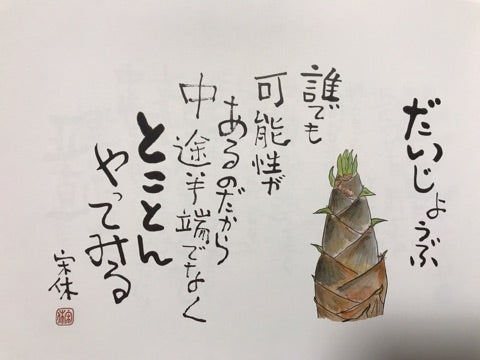 だいじょうぶ
誰でも
可能性が
あるのだから
中途半端でなく
とことん
やってみる
宋休